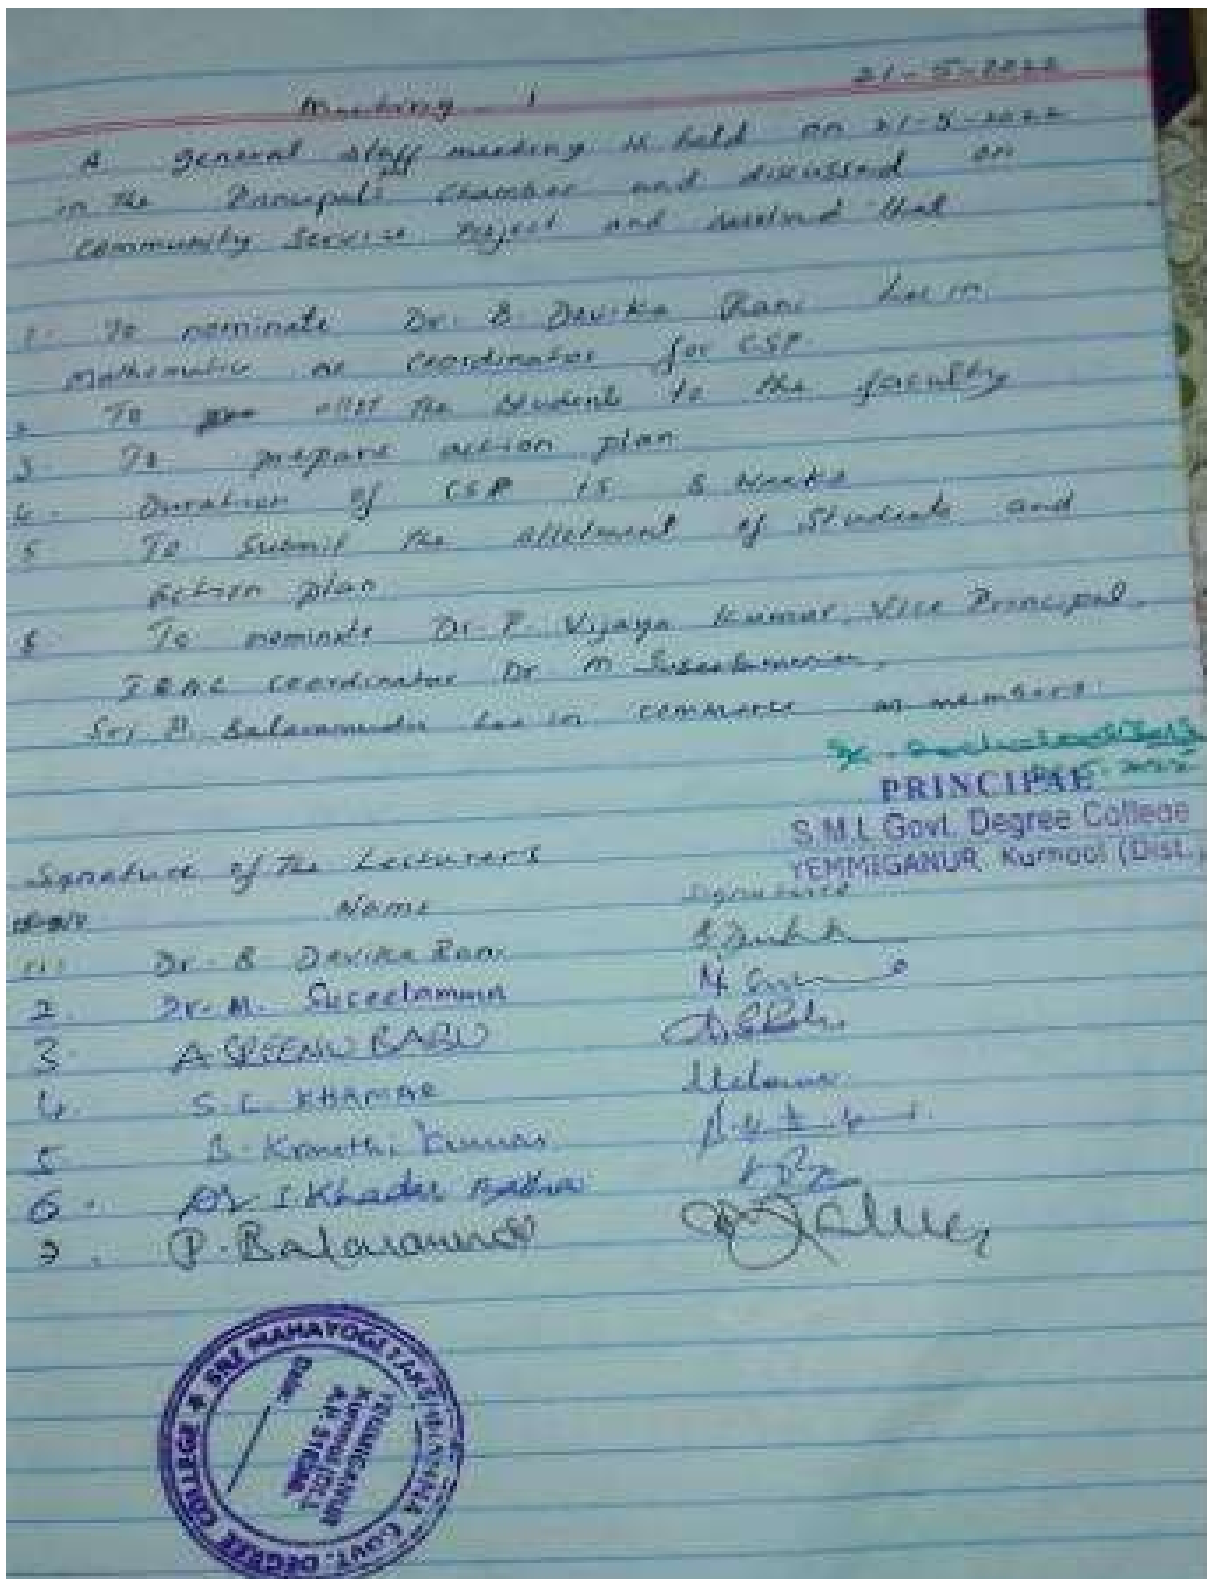 21-5-2022
Meeting - 1
A general staff meeting is held on 21-5-2022
in the Principal's Chamber and discussed on
Community Service Project and resolved that
1. To nominate Dr. B. Devika Rani Lec in
Mathematics as Coordinator for CSP.
2 To allot the students to the faculty
3. To prepare action plan
4. Duration of CSP is 8 Weeks
5 To Submit the allotment of Students and
action plan
6. To nominate Dr. P. Vijaya Kumar, Vice Principal,
IQAC Coordinator Dr M Suseelamma,
Sri P. Balaramudu Lec in Commerce as members.
PRINCIPAL
S.M.L Govt. Degree College
YEMMIGANUR, Kurnool (Dist.)
Signature of The Lecturers
Name Signature
1. Dr. B Devika Rani
2. Dr. M. Suseelamma
3. A SREENU BABU
4. S. L. KHAMAR
5 B. Kranthi Kumar
6. Dr I. Khader
7. P. Balaramudu
SRI MAHAYOGI LAKSHMAMMA GOVT. DEGREE COLLEGE
YEMMIGANUR
Kurnool (Dt.)
Date: